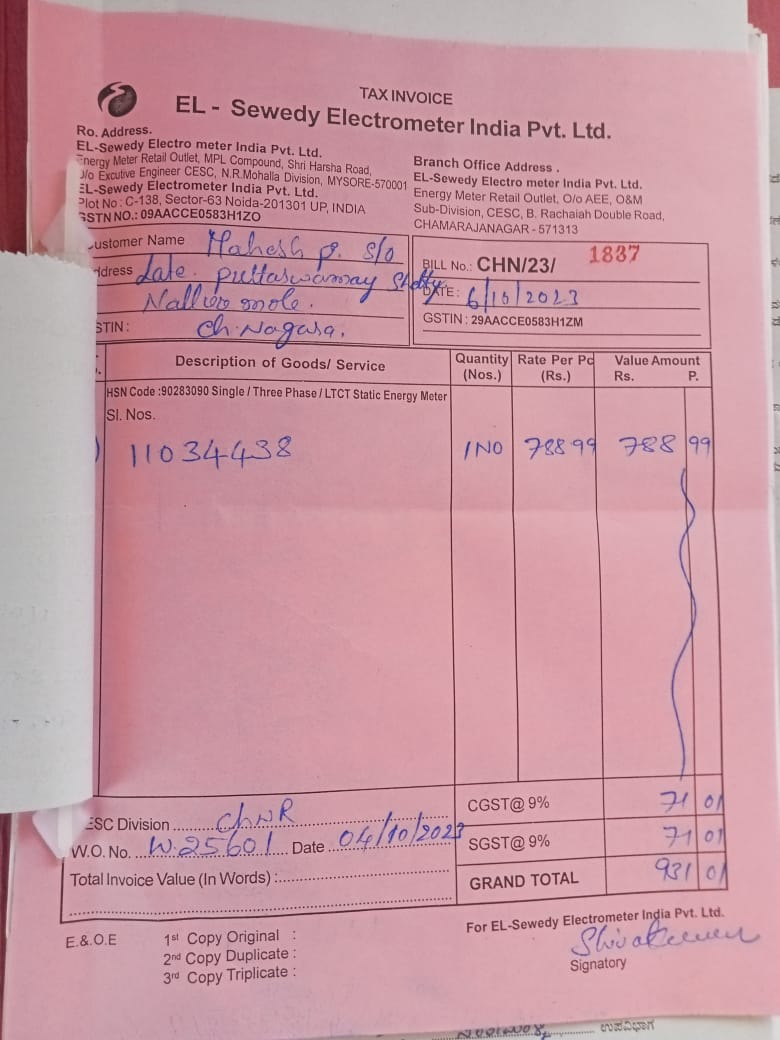 TAX INVOICE
EL - Sewedy Electrometer India Pvt. Ltd.
Ro. Address.
EL-Sewedy Electro meter India Pvt. Ltd.
Energy Meter Retail Outlet, MPL Compound, Shri Harsha Road,
O/o Excutive Engineer CESC, N.R.Mohalla Division, MYSORE-570001
EL-Sewedy Electrometer India Pvt. Ltd.
Plot No : C-138, Sector-63 Noida-201301 UP, INDIA
GSTN NO.: 09AACCE0583H1ZO
Branch Office Address .
EL-Sewedy Electro meter India Pvt. Ltd.
Energy Meter Retail Outlet, O/o AEE, O&M
Sub-Division, CESC, B. Rachaiah Double Road,
CHAMARAJANAGAR - 571313
ustomer Name Mahesh p. S/o
ddress Late. puttaswamay Shetty
STIN : Ch. Nagara.
BILL No.: CHN/23/ 1837
DATE : 6/10/2023
GSTIN : 29AACCE0583H1ZM
Description of Goods/ Service Quantity (Nos.) Rate Per Pc (Rs.) Value Amount Rs. P.
HSN Code :90283090 Single / Three Phase / LTCT Static Energy Meter
Sl. Nos.
) 11034438 1NO 788 99 788 99
CGST@ 9% 71 01
SGST@ 9% 71 01
GRAND TOTAL 931 01
ESC Division ChNR
W.O. No. W.25601 Date 04/10/2023
Total Invoice Value (In Words) :
E.&.O.E
1st Copy Original :
2nd Copy Duplicate :
3rd Copy Triplicate :
For EL-Sewedy Electrometer India Pvt. Ltd.
Signatory
ಉಪವಿಭಾಗ